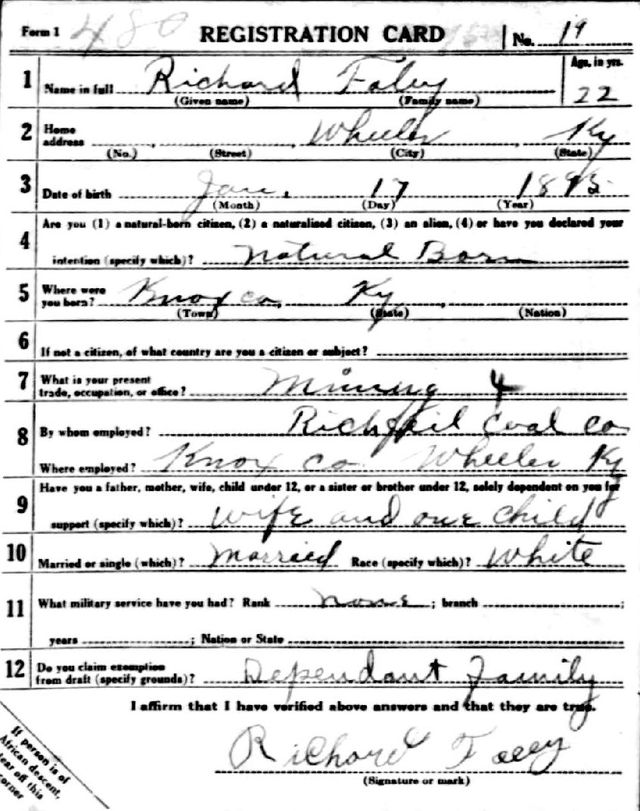 Form 1 480 REGISTRATION CARD No. 19
1 Name in full Richard Foley Age, in yrs. 22
(Given name) (Family name)
2 Home address Wheeler Ky
(No.) (Street) (City) (State)
3 Date of birth Jan. 17 1895
(Month) (Day) (Year)
4 Are you (1) a natural-born citizen, (2) a naturalized citizen, (3) an alien, (4) or have you declared your
intention (specify which)? Natural Born
5 Where were you born? Knox co, Ky
(Town) (State) (Nation)
6 If not a citizen, of what country are you a citizen or subject?
7 What is your present trade, occupation, or office? Mining 4
8 By whom employed? Coal co
Where employed? Knox co Wheeler Ky
9 Have you a father, mother, wife, child under 12, or a sister or brother under 12, solely dependent on you for
support (specify which)? wife and one child
10 Married or single (which)? Married Race (specify which)? White
11 What military service have you had? Rank none ; branch ;
years ; Nation or State
12 Do you claim exemption from draft (specify grounds)? Dependant Family
I affirm that I have verified above answers and that they are true.
Richard Foley
(Signature or mark)
If person is of
African descent,
tear off this
corner